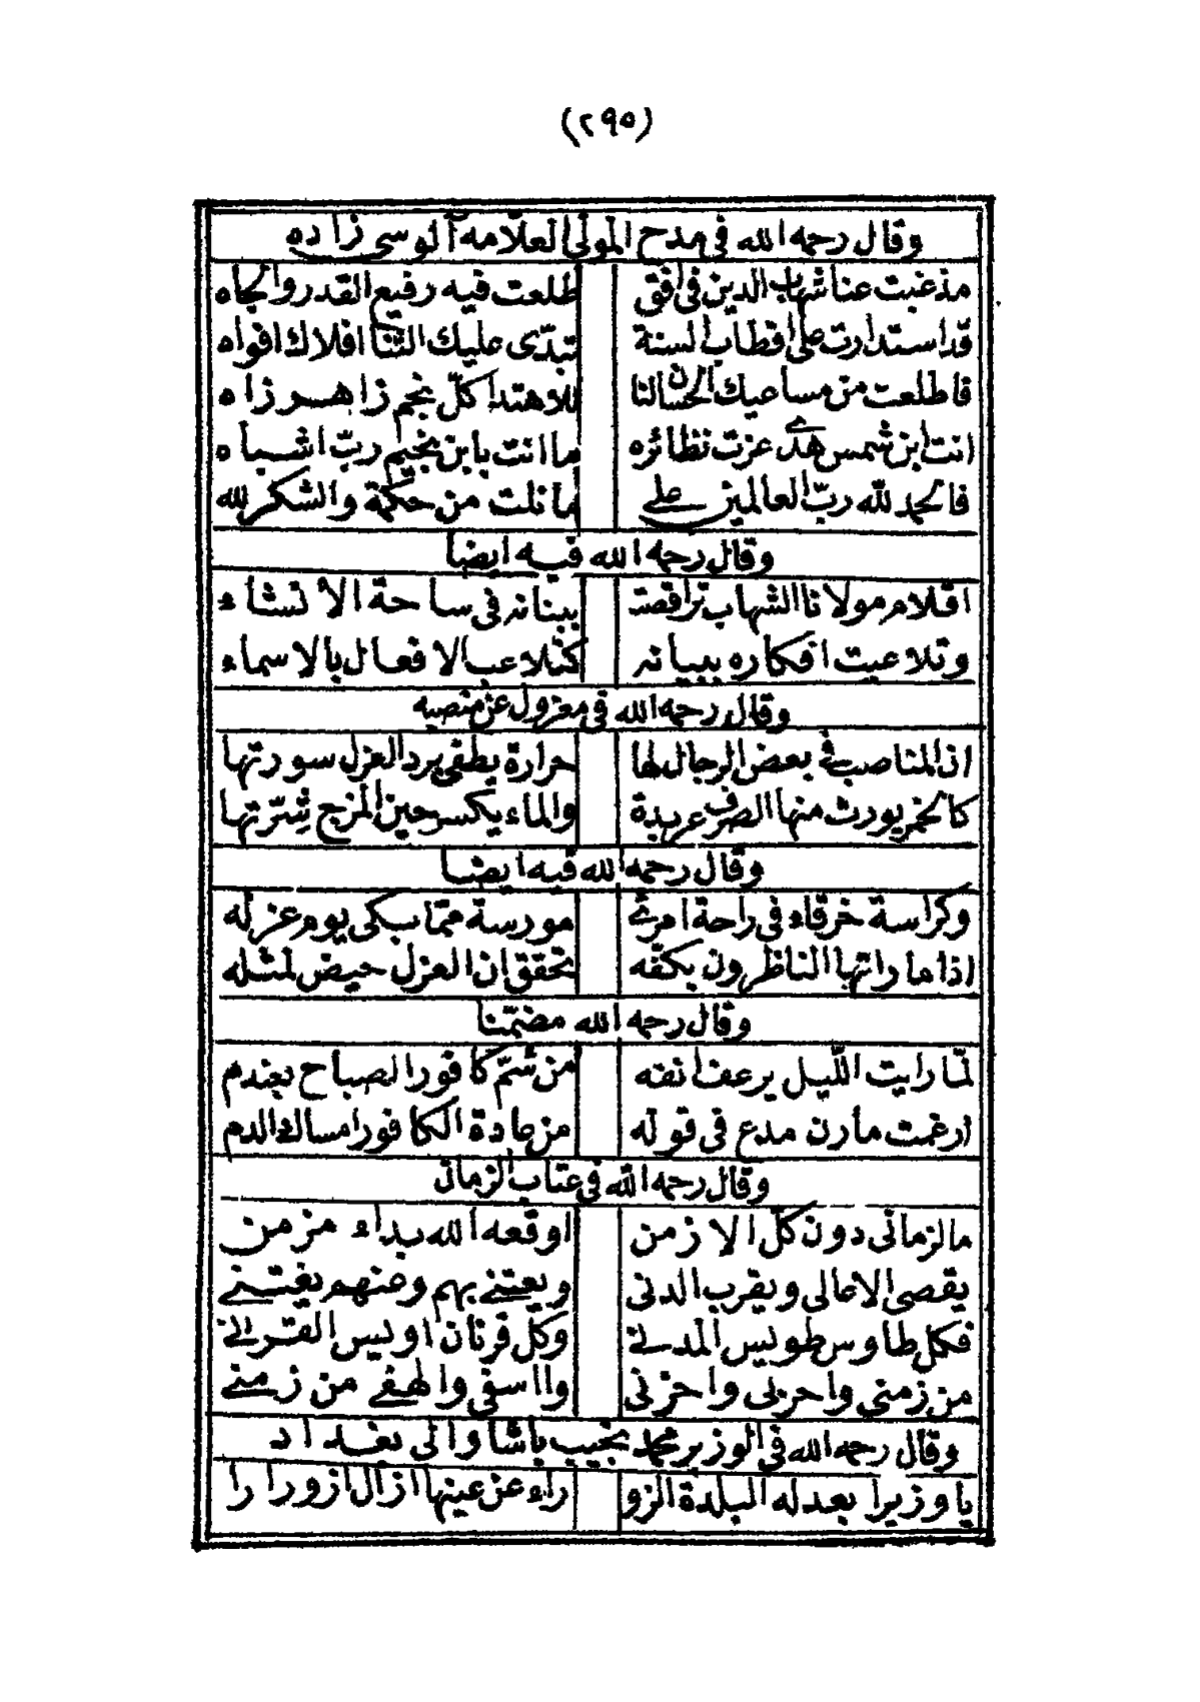 (٢٩٥)
وقال رحمه الله في مدح المولى العلامه آلوسى زاده
مذ غبت عنا شهاب الدين في افق طلعت فيه رفيع القدر والجاه
قد استدارت على اقطاب السنة تبدّى عليك الثنا افلاك افواه
فاطلعت من مساعيك الحسان لنا للاهتدا كلّ نجم زاهر زاه
انت ابن شمس هدى عزت نظائره ما انت يا بن نجيم ربّ اشباه
فالحمد لله ربّ العالمين على ما نلت من حكمة والشكر لله
وقال رحمه الله فيه ايضا
اقلام مولانا الشهاب تراقصت ببنانه في ساحة الانشاء
وتلاعبت افكاره ببيانه كتلاعب الافعال بالاسماء
وقال رحمه الله في معزول عن منصبه
ان المناصب في بعض الرجال لها حرارة يطفي برد العزل سورتها
كالخمر يورث منها الصرف عربدة والماء يكسر حين المزج شرّتها
وقال رحمه الله فيه ايضا
وكراسة خرقاء في راحة امرئ مورسة مما بكى يوم عزله
اذا ما راتها الناظرون بكفّه تحقق ان العزل حيض لمثله
وقال رحمه الله مضمّنا
لمّا رايت اللّيل يرعف انفه من شمّ كافور الصباح بعندم
ارغمت مارن مدع في قوله من عادة الكافور امساك الدم
وقال رحمه الله في عتاب الزمان
ما لزماني دون كلّ الازمن اوقعه الله بداء مزمن
يقصى الاعالى ويقرب الدنى ويعتنى بهم وعنهم يغتنى
فكل طاوس طويس المدنى وكل قرنان اويس القرنى
من زمنى واحربى واحزنى وااسفى والهفى من زمنى
وقال رحمه الله في الوزير محمد نجيب باشا والى بغداد
يا وزيرا بعدله البلدة الزو راء عن عينها ازال ازورارا